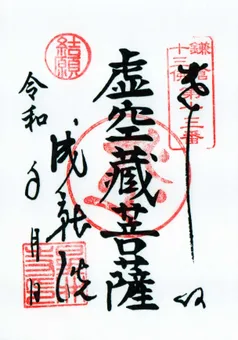 鎌倉
十三佛
第十三番
奉拝
虚空蔵菩薩
結願
成就院
令和 年 月 日